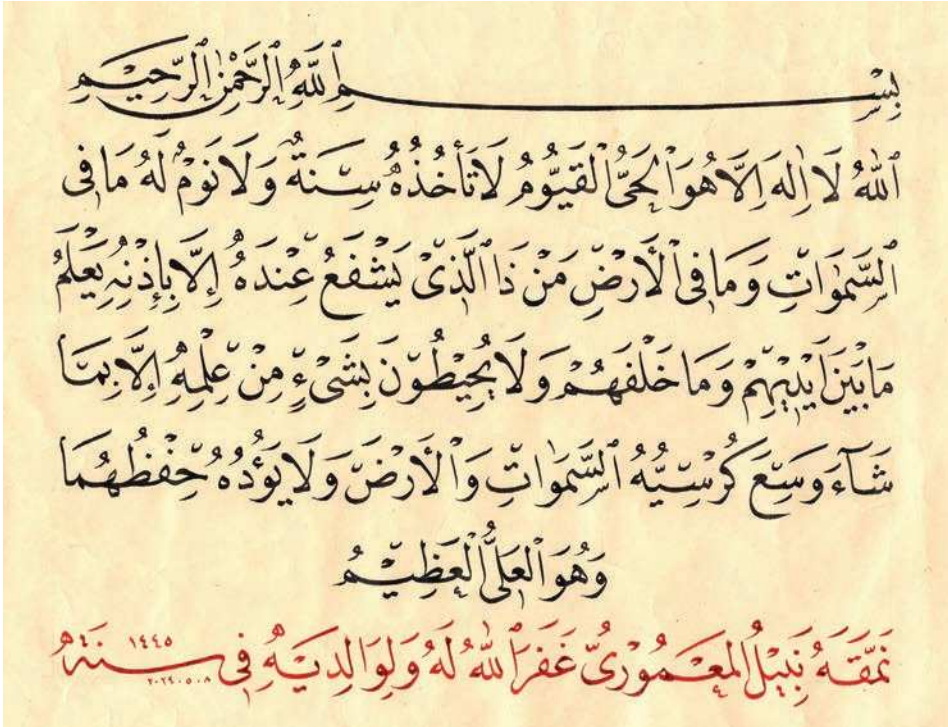 بِسْمِ ٱللَّهِ ٱلرَّحْمٰنِ ٱلرَّحِيمِ
ٱللّٰهُ لَا اِلٰهَ اِلَّا هُوَ ٱلْحَىُّ ٱلْقَيُّوْمُ لَا تَأْخُذُهُ سِنَةٌ وَلَا نَوْمٌ لَهُ مَا فِى
ٱلسَّمٰوَاتِ وَمَا فِى ٱلْأَرْضِ مَنْ ذَا ٱلَّذِىْ يَشْفَعُ عِنْدَهُ إِلَّا بِإِذْنِهِ يَعْلَمُ
مَا بَيْنَ اَيْدِيْهِمْ وَمَا خَلْفَهُمْ وَلَا يُحِيْطُوْنَ بِشَىْءٍ مِنْ عِلْمِهِ إِلَّا بِمَا
شَآءَ وَسِعَ كُرْسِيُّهُ ٱلسَّمٰوَاتِ وَٱلْأَرْضَ وَلَا يَؤُدُهُ حِفْظُهُمَا
وَهُوَ ٱلْعَلِىُّ ٱلْعَظِيْمُ
نَمَّقَهُ نَبِيْلُ ٱلْمَعْمُوْرِىُّ غَفَرَ ٱللّٰهُ لَهُ وَلِوَالِدَيْهِ فِى سَنَةِ ١٤٤٥
٢٠٢٤.٠٥.٠٨